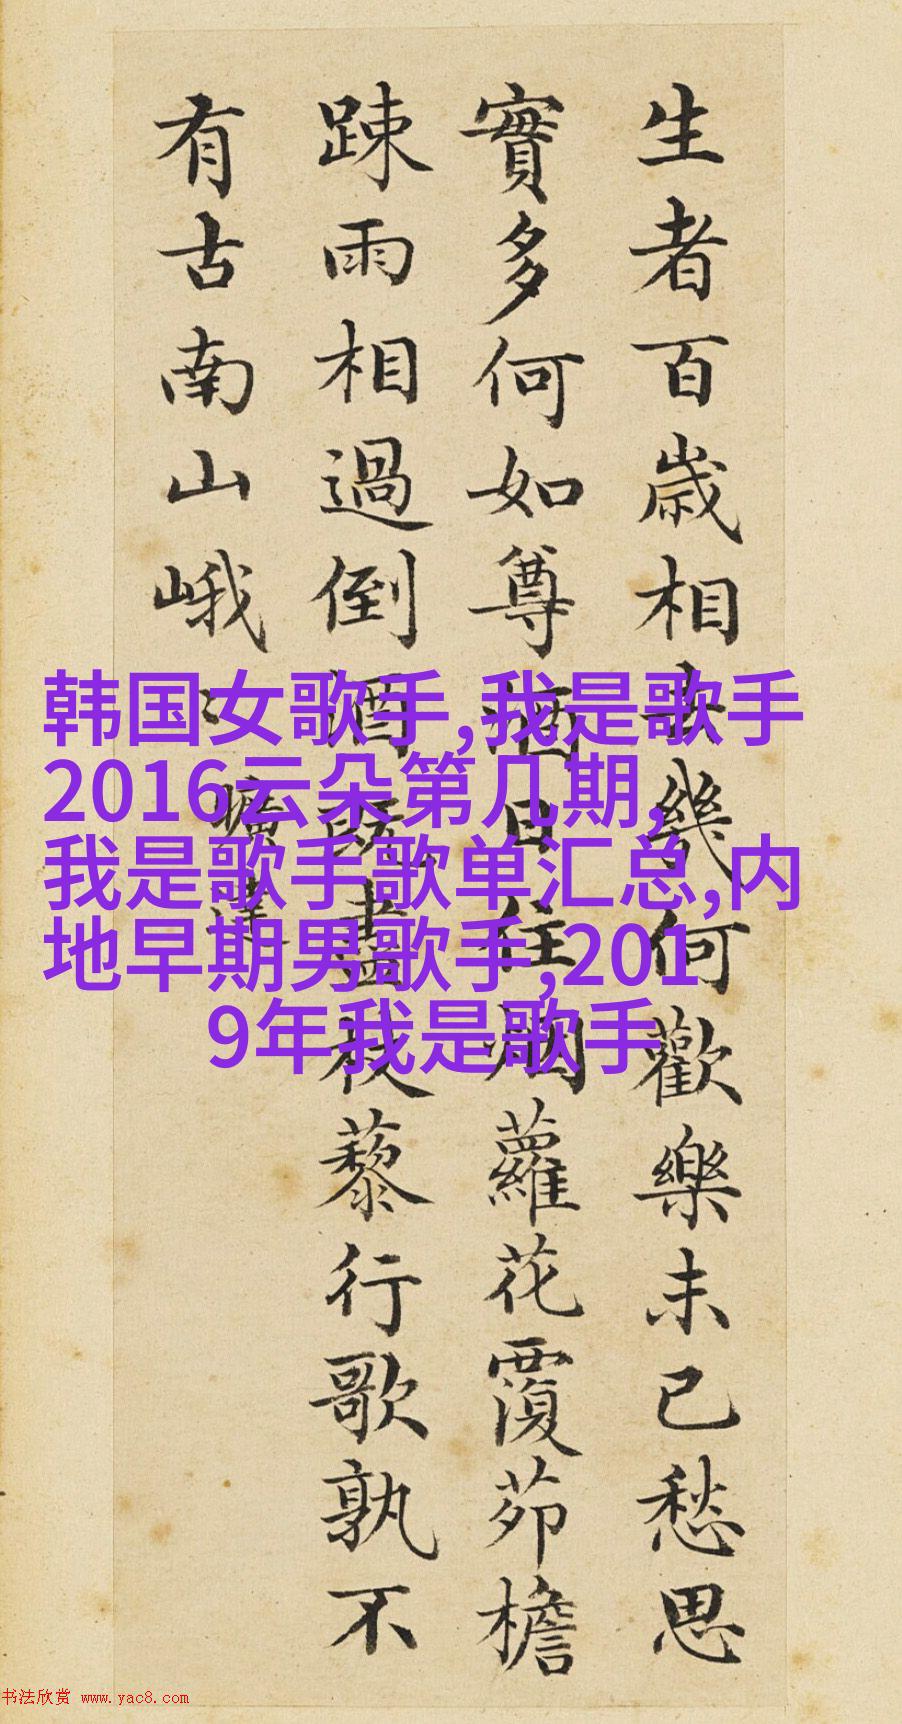 生者百歲相去幾何歡樂未已愁思
實多何如尊酒日往烟蘿花覆茆檐
踈雨相過倒酒既盡杖藜行歌孰不
有古南山峨
曠達
韩国女歌手,我是歌手
2016云朵第几期,
我是歌手歌单汇总,内
地早期男歌手,201
9年我是歌手
书法欣赏 www.yac8.com